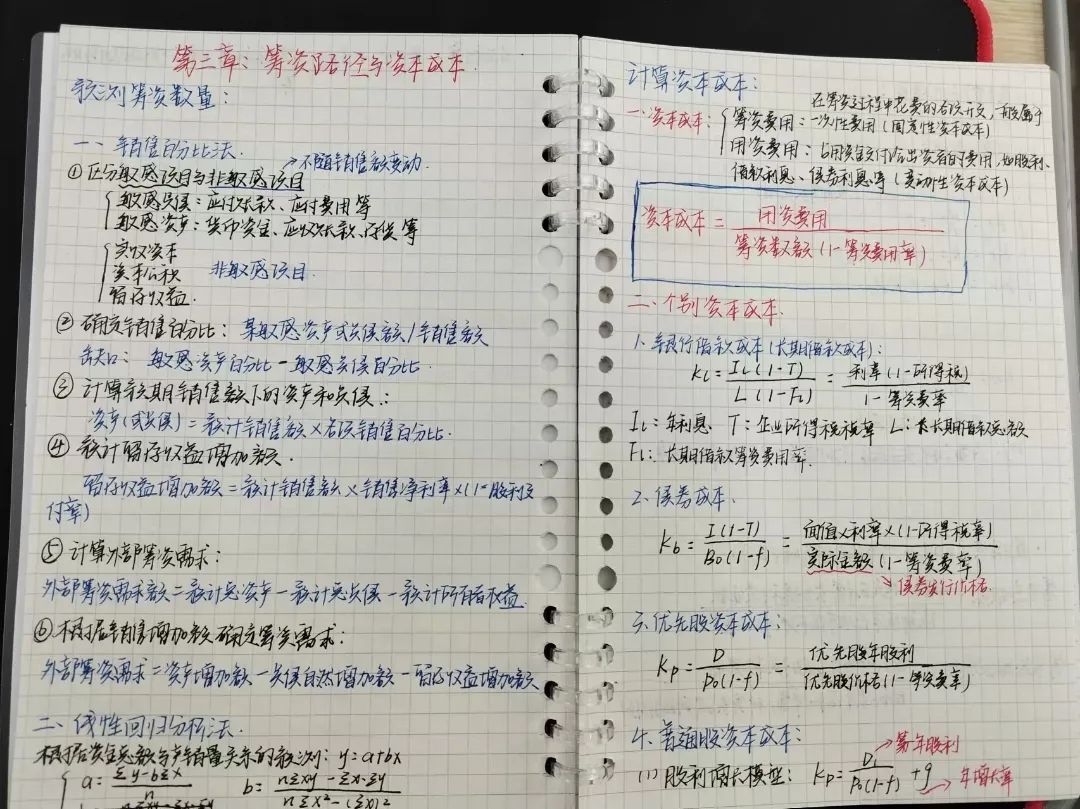 第三章：筹资路径与资本成本
预测筹资数量：
一、销售百分比法.
→不随销售额变动.
①区分敏感项目与非敏感项目
敏感负债：应付账款、应付费用等
敏感资产：货币资金、应收账款、存货等
实收资本
资本公积 非敏感项目.
留存收益.
②确定销售百分比：某敏感资产或负债额/销售额
缺口：敏感资产百分比-敏感负债百分比.
③计算预期销售额下的资产和负债：
资产(或负债)=预计销售额×各项销售百分比.
④预计留存收益增加额.
留存收益增加额=预计销售额×销售净利率×(1-股利支
付率)
⑤计算外部筹资需求：
外部筹资需求额=预计总资产-预计总负债-预计所有者权益
⑥根据销售增加额确定筹资需求：
外部筹资需求=资产增加额-负债自然增加额-留存收益增加额
二、线性回归分析法.
根据资金总额与产销量关系的预测：y=a+bx
a=(Σy-bΣx)/n b=(nΣxy-Σx·Σy)/(nΣx²-(Σx)²)
计算资本成本：
在筹资过程中花费的各项开支，一般属于
一.资本成本：筹资费用：一次性费用(固定性资本成本)
用资费用：占用资金支付给出资者的费用，如股利、
借款利息、债券利息等(变动性资本成本)
资本成本=用资费用/筹资数额(1-筹资费用率)
二、个别资本成本.
1.银行借款成本(长期借款成本)：
K_L=I_L(1-T)/L(1-F_L)=利率(1-所得税)/1-筹资费率
I_L：年利息、T：企业所得税税率 L：长期借款总额
F_L：长期借款筹资费用率.
2.债券成本.
K_b=I(1-T)/B₀(1-f)=面值×利率×(1-所得税率)/实际金额(1-筹资费率)
→债券发行价格.
3.优先股资本成本：
K_p=D/P₀(1-f)=优先股年股利/优先股价格(1-筹资费率)
4.普通股资本成本：
→第一年股利
(1)股利增长模型：K_p=D₁/P₀(1-f)+g
→年增长率